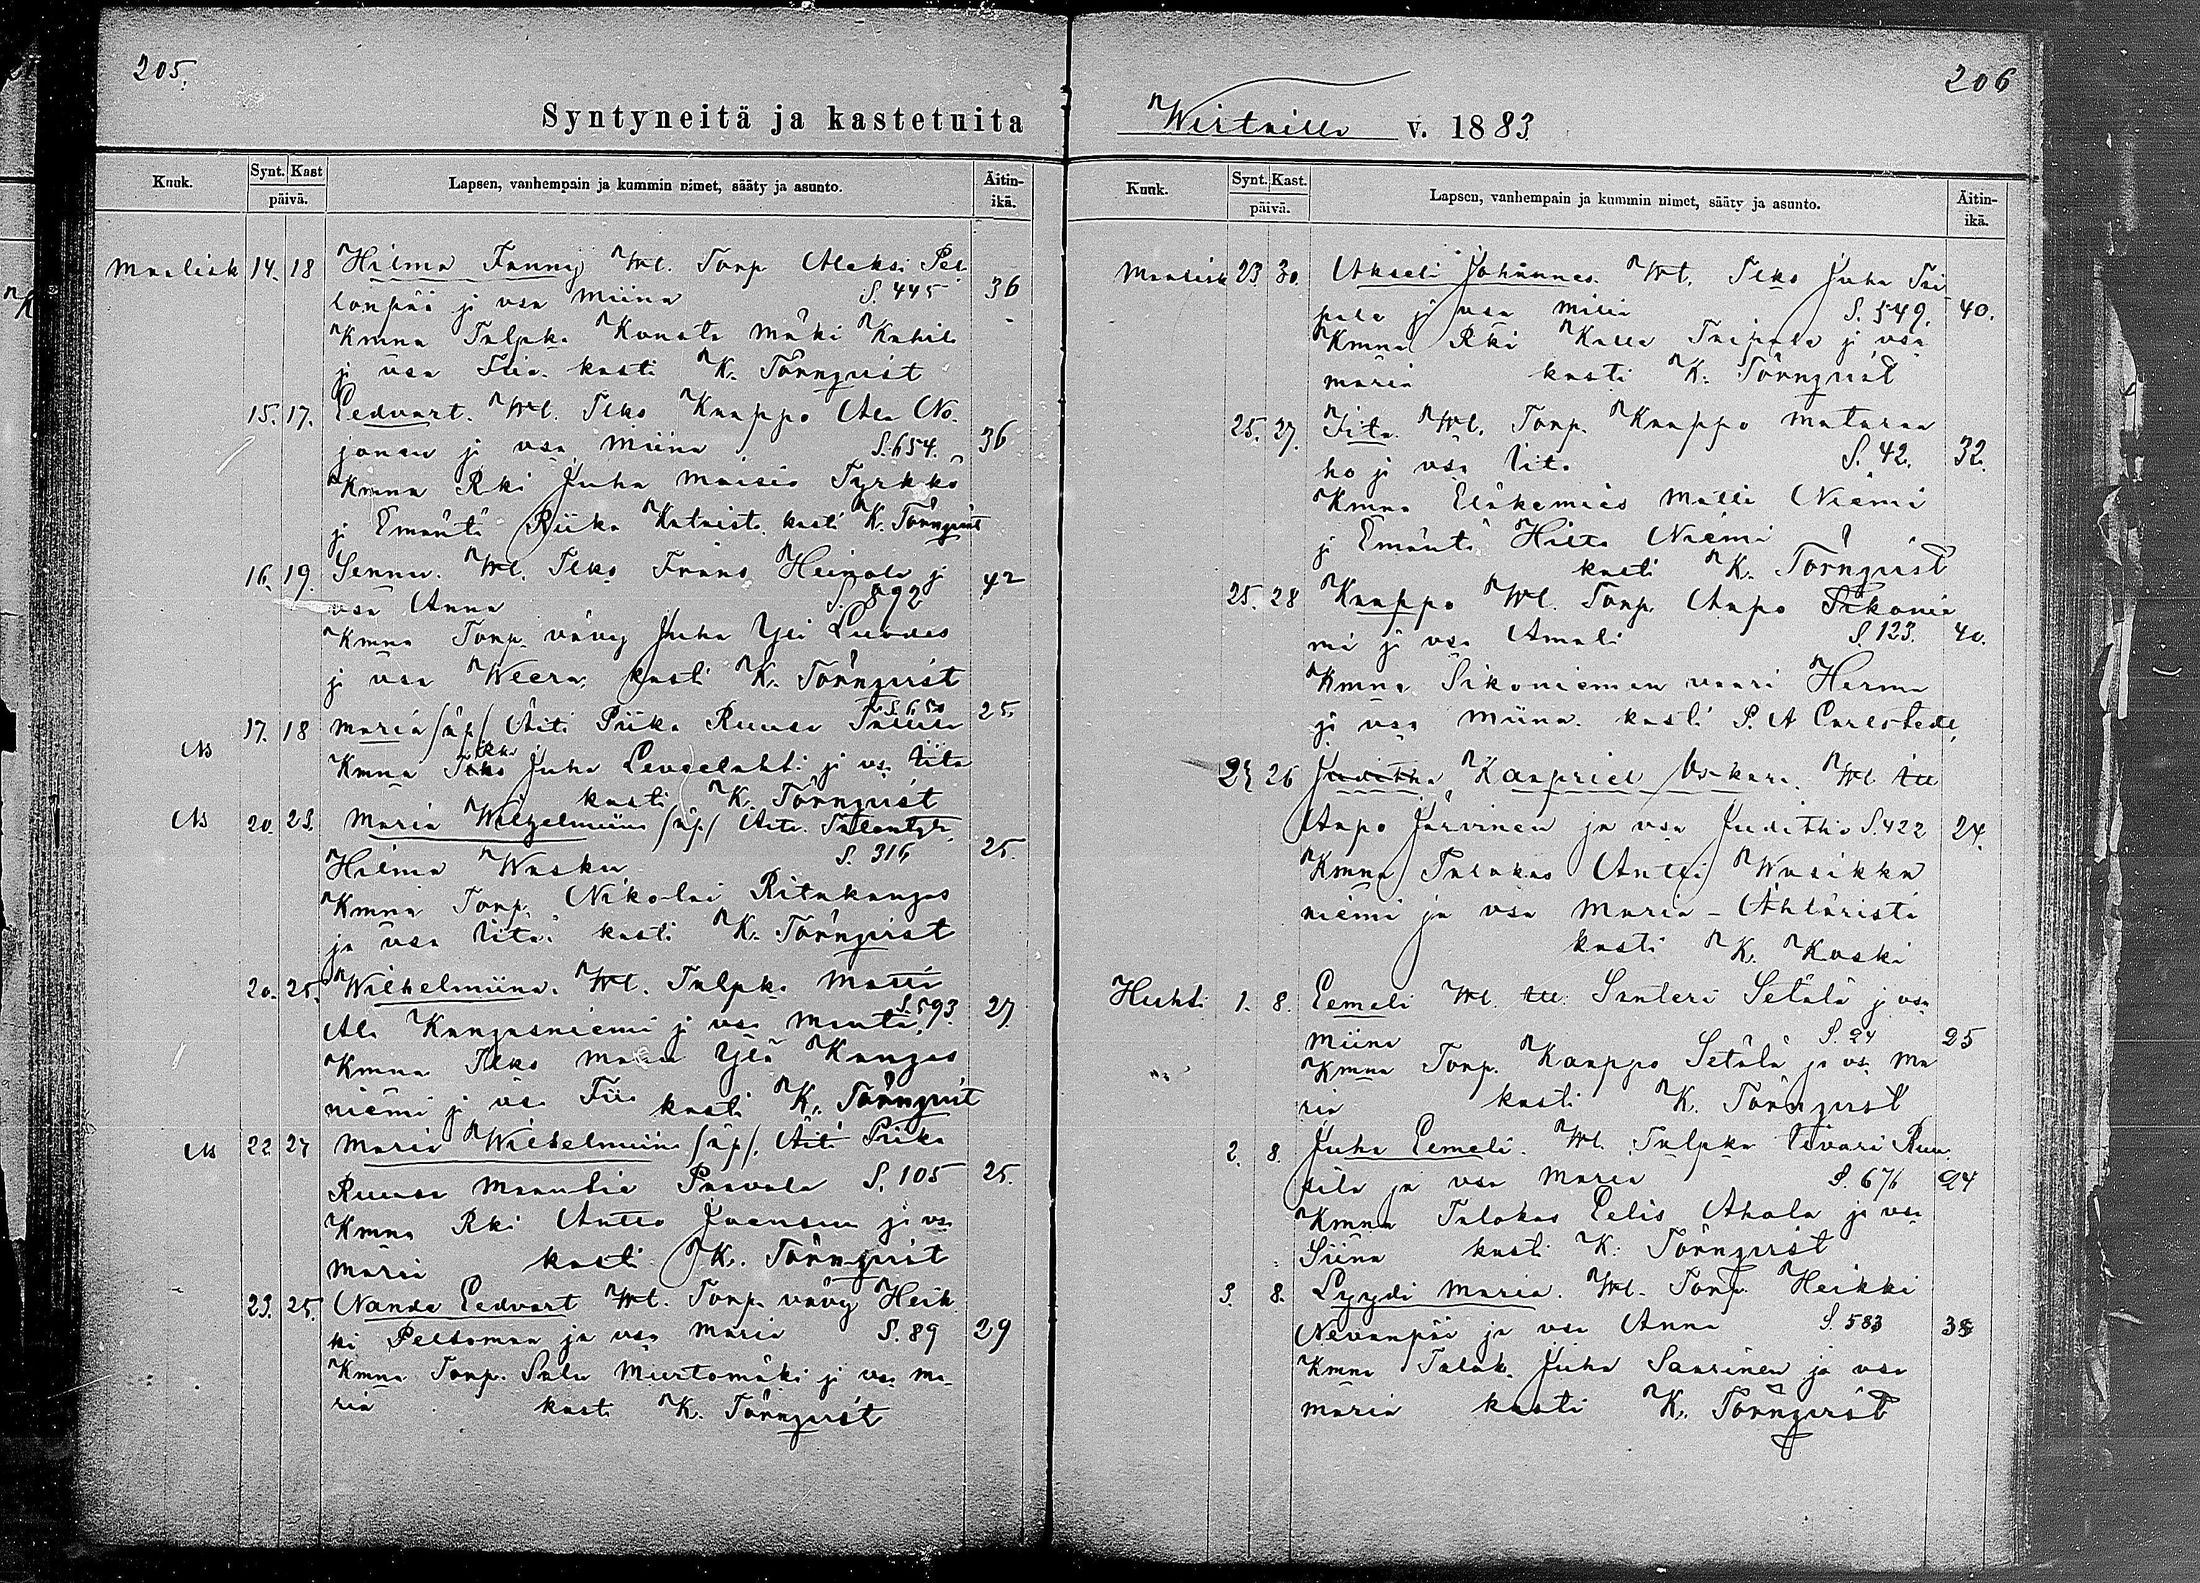 205.
Syntyneitä ja kastetuita
Kuuk.
Synt. Kast
päivä.
Lapsen, vanhempain ja kummin nimet, sääty ja asunto.
Äitin-
ikä.
Maalisk 14. 18 Hilma Fanny Wl. Torp Aleksi Pel
lonpää ja vsa Miina S. 445 36
Kmna Talpka Kunata Mäki
ja vsa Fiia. kasti K. Törnqvist
15. 17. Eedvart. Wl. Itks Kaappo Ala No.
jonen ja vsa Miina S. 654. 36
Kmna Rki Juha Maisio Tyrkkö
ja Emäntä Riika kasti K. Törnqvist
16. 19. Senna. Wl. Itks Frans Heinola ja
vsa Anna S. 892 42
Kmna Torp. vävy Juha Yli Luodes
ja vsa Weera, kasti K. Törnqvist
17. 18 Maria /äp/ Äiti Piika Ruusa S. 650 25.
Kmna Juha Lengelahti ja vs. Iita
kasti K. Törnqvist
20. 23. Maria Wilhelmiina /äp/ Äiti.
Hilma Wasku S. 316 25.
Kmna Torp. Nikolai Ritakangas
ja vsa Iita. kasti K. Törnqvist
20. 25. Wilhelmiina. Wl. Talpka Matti
Ala Kangasniemi ja vsa Manta S. 593. 27.
Kmna Itks Matti Ylä Kangas
niemi ja vsa Fiia kasti K. Törnqvist
22 27 Maria Wilhelmiina /äp/. Äiti Piika
Ruusa Maantie Paavola S. 105 25.
Kmna Rki Antto Joensuu ja vsa
Maria kasti K. Törnqvist
23. 25. Nanda Eedvart Wl. Torp. vävy Heik
ki Peltomaa ja vsa Maria S. 89 29
Kmna Torp. Salu Murtomäki ja vsa Ma
ria kasti K. Törnqvist
206
Wirtailla v. 1883
Kuuk.
Synt. Kast.
päivä.
Lapsen, vanhempain ja kummin nimet, sääty ja asunto.
Äitin-
ikä.
Maalisk 23 30. Akseli Johannes. Wl. Itks Juha Tai
pale ja vsa Milia S. 549. 40.
Kmna Rki Kalle Taipale ja vsa
Maria kasti K. Törnqvist
25. 27. Fiia. Wl. Torp. Kaappo Mataraa
ho ja vsa Iita S. 42. 32.
Kmna Eläkemies Matti Niemi
ja Emäntä Hilta Niemi
kasti K. Törnqvist
25. 28 Kaappo Wl. Torp. Aapo Sikonie
mi ja vsa Amali S. 123. 40.
Kmna Sikoniemen vaari Herma
ja vsa Miina. kasti P. A Carlstedt
25 26 Juditha, Kaapriel Oskari. Wl Itl
Aapo Järvinen ja vsa Juditha S. 422 24.
Kmna Talokas Antti Wasikka
niemi ja vsa Maria - Ähtäristä
kasti K. Koski
Huhti 1. 8. Eemeli Wl. Itl. Santeri Setälä ja vsa
Miina S. 24 25
Kmna Torp. Kaappo Setälä ja vs. Ma
ria kasti K. Törnqvist
2. 8. Juha Eemeli. Wl. Talpka Iivari Ruu
sila ja vsa Maria S. 676 24
Kmna Talokas Eelis Ahola ja vsa
Siina kasti K. Törnqvist
3. 8. Lyydi Maria. Wl. Torp. Heikki
Nevanpää ja vsa Anna S. 583 38
Kmna Talok. Juha Saarinen ja vsa
Maria kasti K. Törnqvist